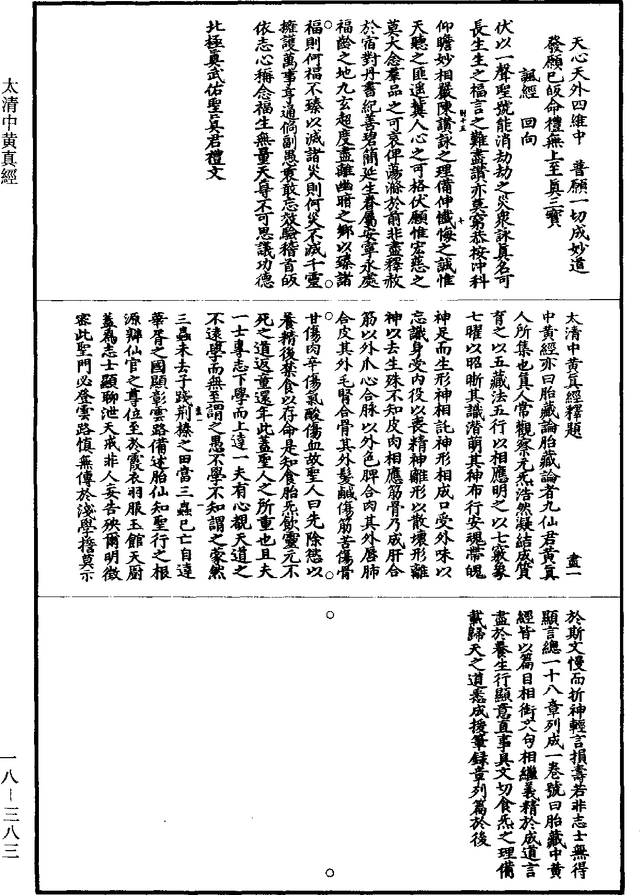 太清中黃真經
一八－三八三
天心天外四維中　普願一切成妙道
發願已皈命禮無上至真三寶
誦經　回向
伏以一聲聖號能消劫劫之災衆詠真名可
長生生之福言之難盡讚亦莫第恭按沖科
仰瞻妙相嚴陳讚詠之理備伸懺悔之誠惟
天聽之匪遥冀人心之可格伏願惟宏慈之
莫大念羣品之可哀俾蕩滌於前非盡釋赦
於宿對丹書紀善碧簡延生眷屬安寧永處
福齡之地九玄超度盡離幽暗之鄉以臻諸
福則何福不臻以滅諸災則何災不滅千靈
擁護萬事亨通倘副愚衷敢忘效驗稽首皈
依志心稱念福生無量天尊不可思議功德
北極真武佑聖真君禮文
太清中黃真經釋題　盡一
中黃經亦曰胎藏論胎藏論者九仙君黃真
人所集也真人常觀察元炁浩然凝結成質
育之以五藏法五行以相應明之以七竅象
七曜以昭晰其識潛萌其神布行安魂帶魄
神足而生形神相託神形相成口受外味以
忘識身受內役以喪精神離形以散壞形離
神以去生殊不知皮肉相應筋骨乃成肝合
筋以外爪心合脉以外色脾合肉其外唇肺
合皮其外毛腎合骨其外髮鹹傷筋苦傷骨
甘傷肉辛傷氣酸傷血故聖人曰先除慾以
養精後禁食以存命是知食胎炁飲靈元不
死之道返童還年此蓋聖人之所重也且夫
一士專志下學而上達一夫有心覩天道之
不遠學而無至謂之愚不學不知謂之蒙然
三蟲未去子踐荆榛之田當三蟲已亡自達
華胥之國顯彰雲路備述胎仙知聖行之根
源辯仙官之尊位至於霞衣羽服玉館天厨
蓋爲志士顯聊泄天戒非人妄告殃爾明徵
宻此聖門必登雲路慎無傳於淺學擔莫示
於斯文慢而折神輕言損壽若非志士無得
顯言總一十八章列成一卷號曰胎藏中黃
經皆以篇目相衘文句相繼義精於成道言
盡於養生行顯意直事具文切食炁之理備
載歸天之道悉成授筆録章列篇於後